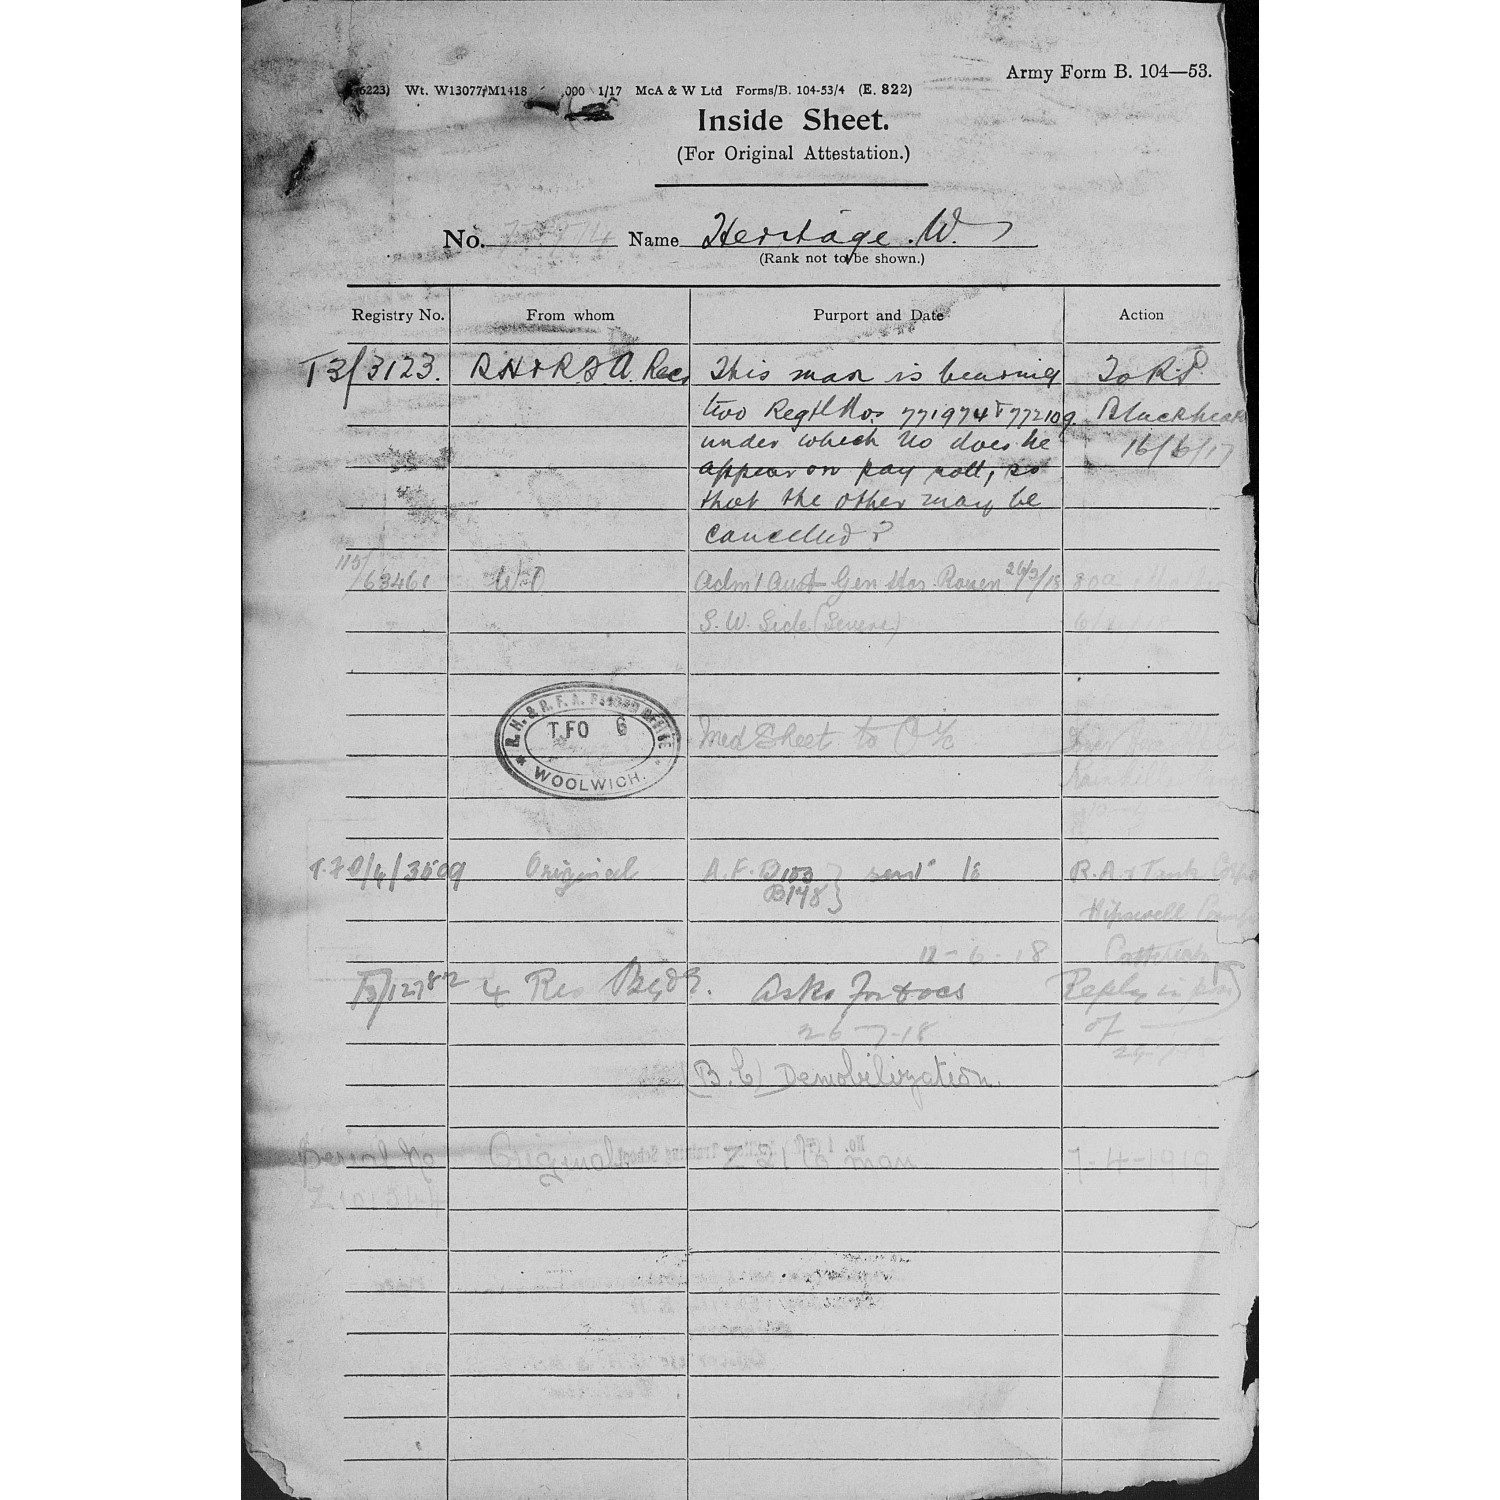 Army Form B. 104—53.
6223) Wt. W13077/M1418 000 1/17 McA & W Ltd Forms/B. 104-53/4 (E. 822)
Inside Sheet.
(For Original Attestation.)
No. Name Heritage. W.
(Rank not to be shown.)
Registry No. From whom Purport and Date Action
T3/3123. RH & RFA. Recs This man is bearing To R.P
two Regtl Nos 771974 & 772109. Blackheath
under which No does he 16/6/17
appear on pay roll, so
that the other may be
cancelled?
115/63461 WO Adm1 Aust Gen Hos. Rouen 26/3/18
S. W. Side (Severe)
R. H. & R. F. A. RECORD OFFICE
T.FO 6
WOOLWICH.
Med Sheet to
T.F.O/4/3509 Original A. F. B103 sent to R.A. & Tank Corps
B178 Hipswell
11-6-18 Catterick
T3/12782 4 Res Bgde. Asks for docs Reply in
26-7-18 of
(B.C) Demobilization.
Serial No Original Z 21 to man. 7-4-1919